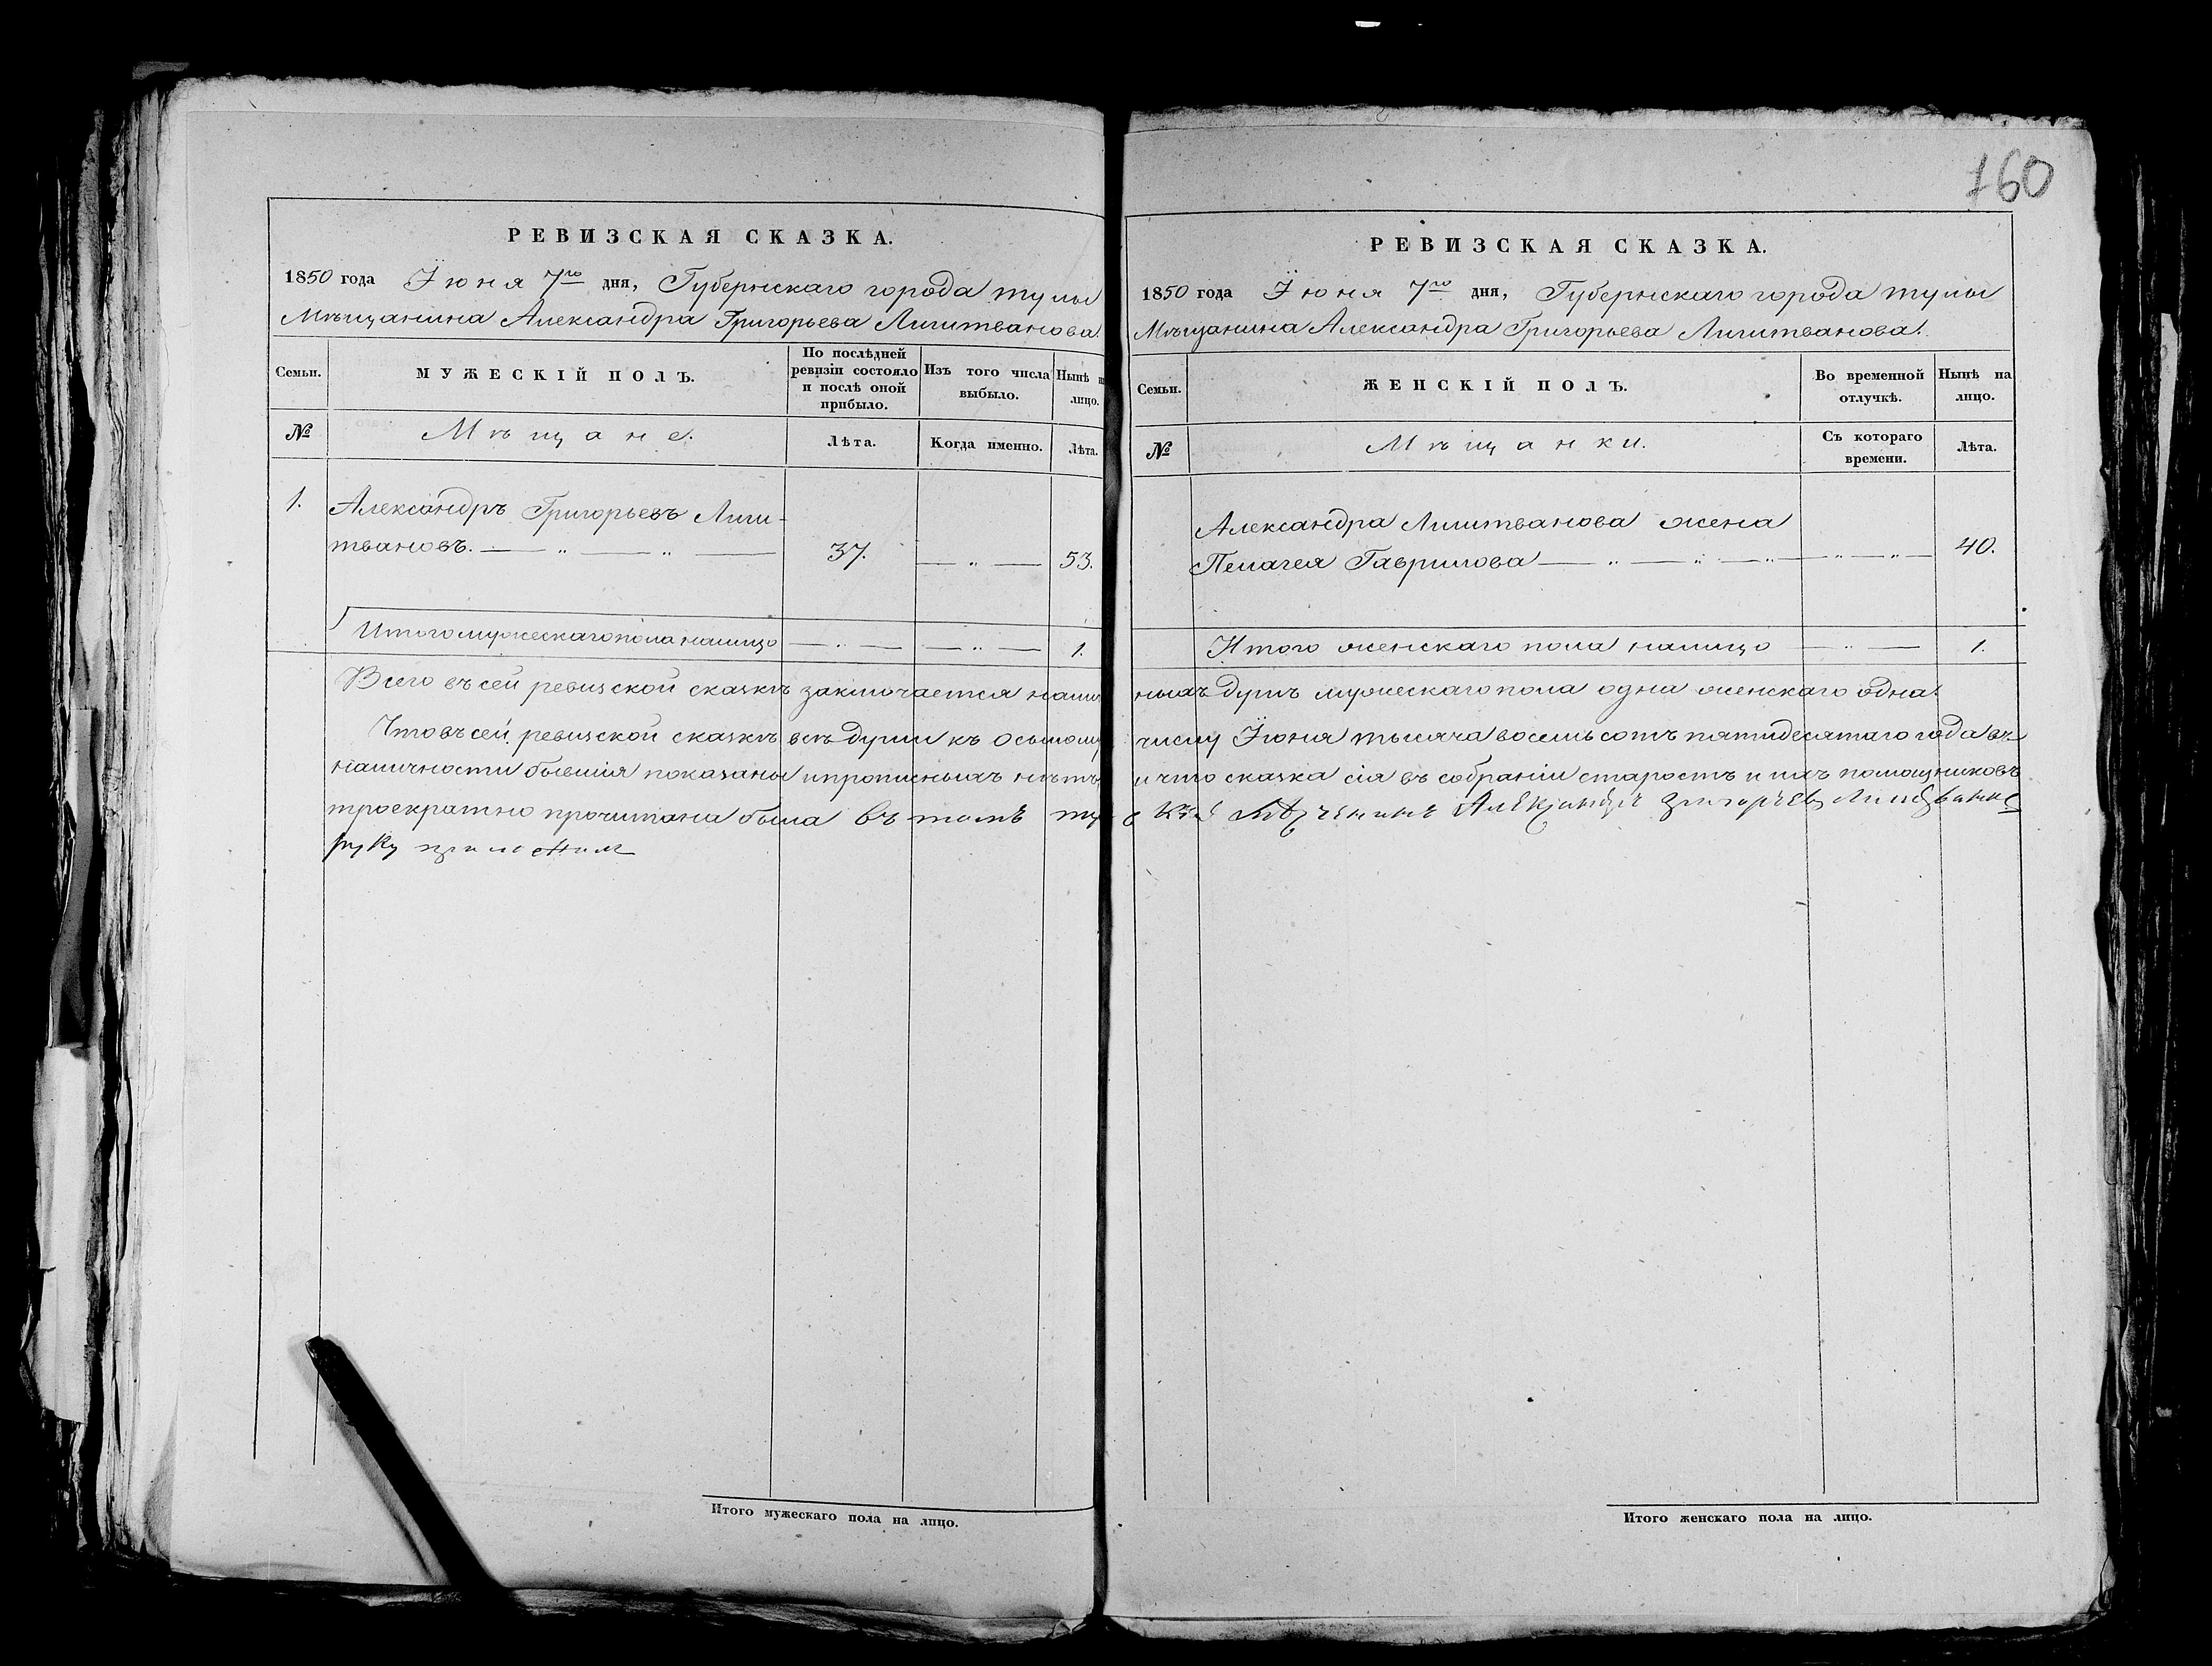 160
РЕВИЗСКАЯ СКАЗКА.
1850 года Іюня 7го дня, Губернскаго города тулы
Мѣщанина Александра Григорьева Лигитванова.
Семьи.
МУЖЕСКІЙ ПОЛЪ.
По послѣдней
ревизіи состояло
и послѣ оной
прибыло.
Изъ того числа
выбыло.
Нынѣ н
лицо.
№
Мѣщане.
Лѣта.
Когда именно.
Лѣта.
1.
Александръ Григорьевъ Лиги-
твановъ. — „ — „ —
37.
— „ —
53.
Итого мужескаго пола налицо
— „ —
— „ —
1.
Всего въ сей ревизской сказкѣ заключается налич
Что въ сей ревизской сказкѣ всѣ души къ осьмому
наличности бывшія показаны и прописныхъ нѣтъ,
троекратно прочитана была въ томъ ту
руку приложил
Итого мужескаго пола на лицо.
РЕВИЗСКАЯ СКАЗКА.
1850 года Іюня 7го дня, Губернскаго города тулы
Мѣщанина Александра Григорьева Лигитванова.
Семьи.
ЖЕНСКІЙ ПОЛЪ.
Во временной
отлучкѣ.
Нынѣ на
лицо.
№
Мѣщанки.
Съ котораго
времени.
Лѣта.
Александра Лигитванова жена
Пелагея Гаврилова — „ — „ — „
— „ — „ —
40.
Итого женскаго пола налицо
— „ —
1.
ныхъ душъ мужескаго пола одна женскаго одна.
числу Іюня тысяча восемьсотъ пятидесятаго года въ
и что сказка сія въ собраніи старостъ и ихъ помощниковъ
Григорьев
Итого женскаго пола на лицо.